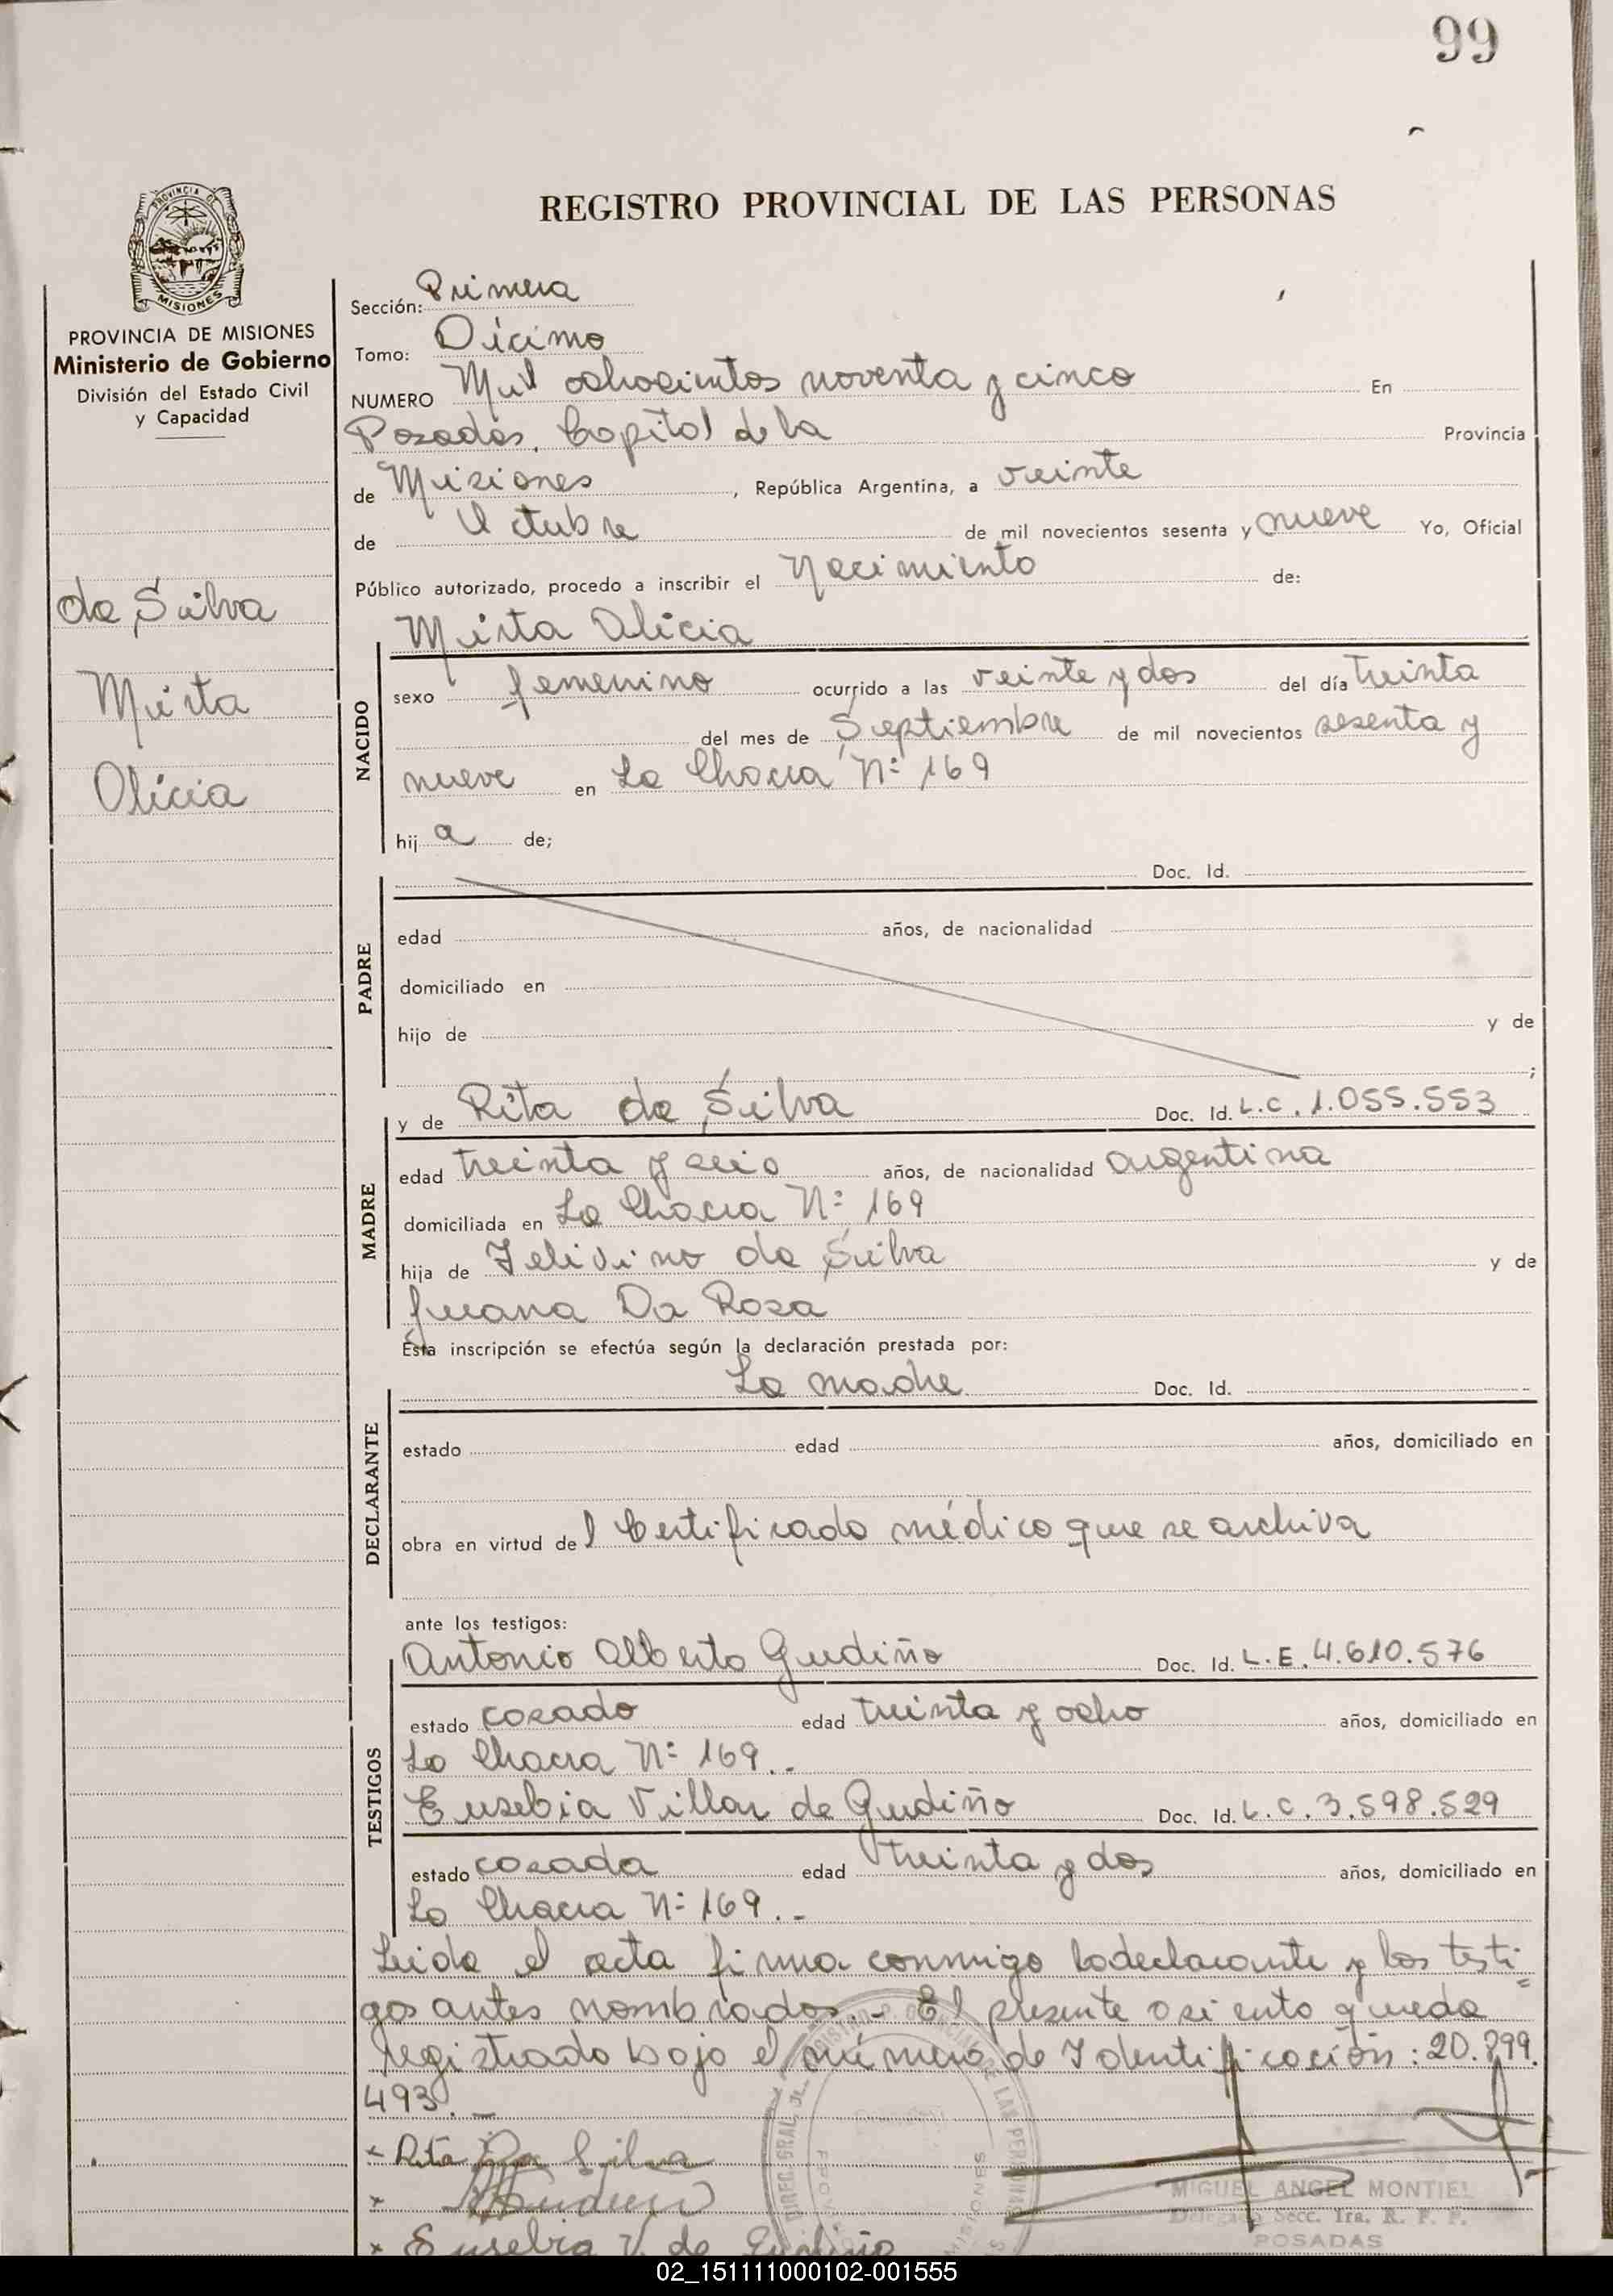 99
PROVINCIA DE MISIONES
PROVINCIA DE MISIONES
Ministerio de Gobierno
División del Estado Civil
y Capacidad
da Silva
Mirta
Alicia
REGISTRO PROVINCIAL DE LAS PERSONAS
Sección: Primera
Tomo: Décimo
NUMERO Mil ochocientos noventa y cinco En
Posadas, Capital de la Provincia
de Misiones, República Argentina, a veinte
de Octubre de mil novecientos sesenta y nueve Yo, Oficial
Público autorizado, procedo a inscribir el Nacimiento de:
Mirta Alicia
NACIDO
sexo femenino ocurrido a las veinte y dos del día treinta
del mes de Septiembre de mil novecientos sesenta y
nueve en La Chacra Nº 169
hij a de;
PADRE
Doc. Id.
edad años, de nacionalidad
domiciliado en
hijo de y de
;
MADRE
y de Rita da Silva Doc. Id. L.C. 1.055.553
edad treinta y seis años, de nacionalidad argentina
domiciliada en La Chacra Nº 169
hija de da Silva y de
Juana Da Rosa
Esta inscripción se efectúa según la declaración prestada por:
DECLARANTE
La madre Doc. Id.
estado edad años, domiciliado en
obra en virtud de l Certificado médico que se archiva
ante los testigos:
TESTIGOS
Antonio Alberto Gudiño Doc. Id. L.E. 4.610.576
estado casado edad treinta y ocho años, domiciliado en
La Chacra Nº 169..
Eusebia Villar de Gudiño Doc. Id. L.C. 3.598.529
estado casada edad treinta y dos años, domiciliado en
La Chacra Nº 169.-
Leída el acta firma conmigo la declarante y los testi=
gos antes nombrados.- El presente asiento queda
registrado bajo el número de Identificación: 20.899.
493.-
x Rita Da Silva
x
x Eusebia V. de Gudiño
MIGUEL ANGEL MONTIEL
Delegado Secc. 1ra. R. P. P.
POSADAS
02_151111000102-001555